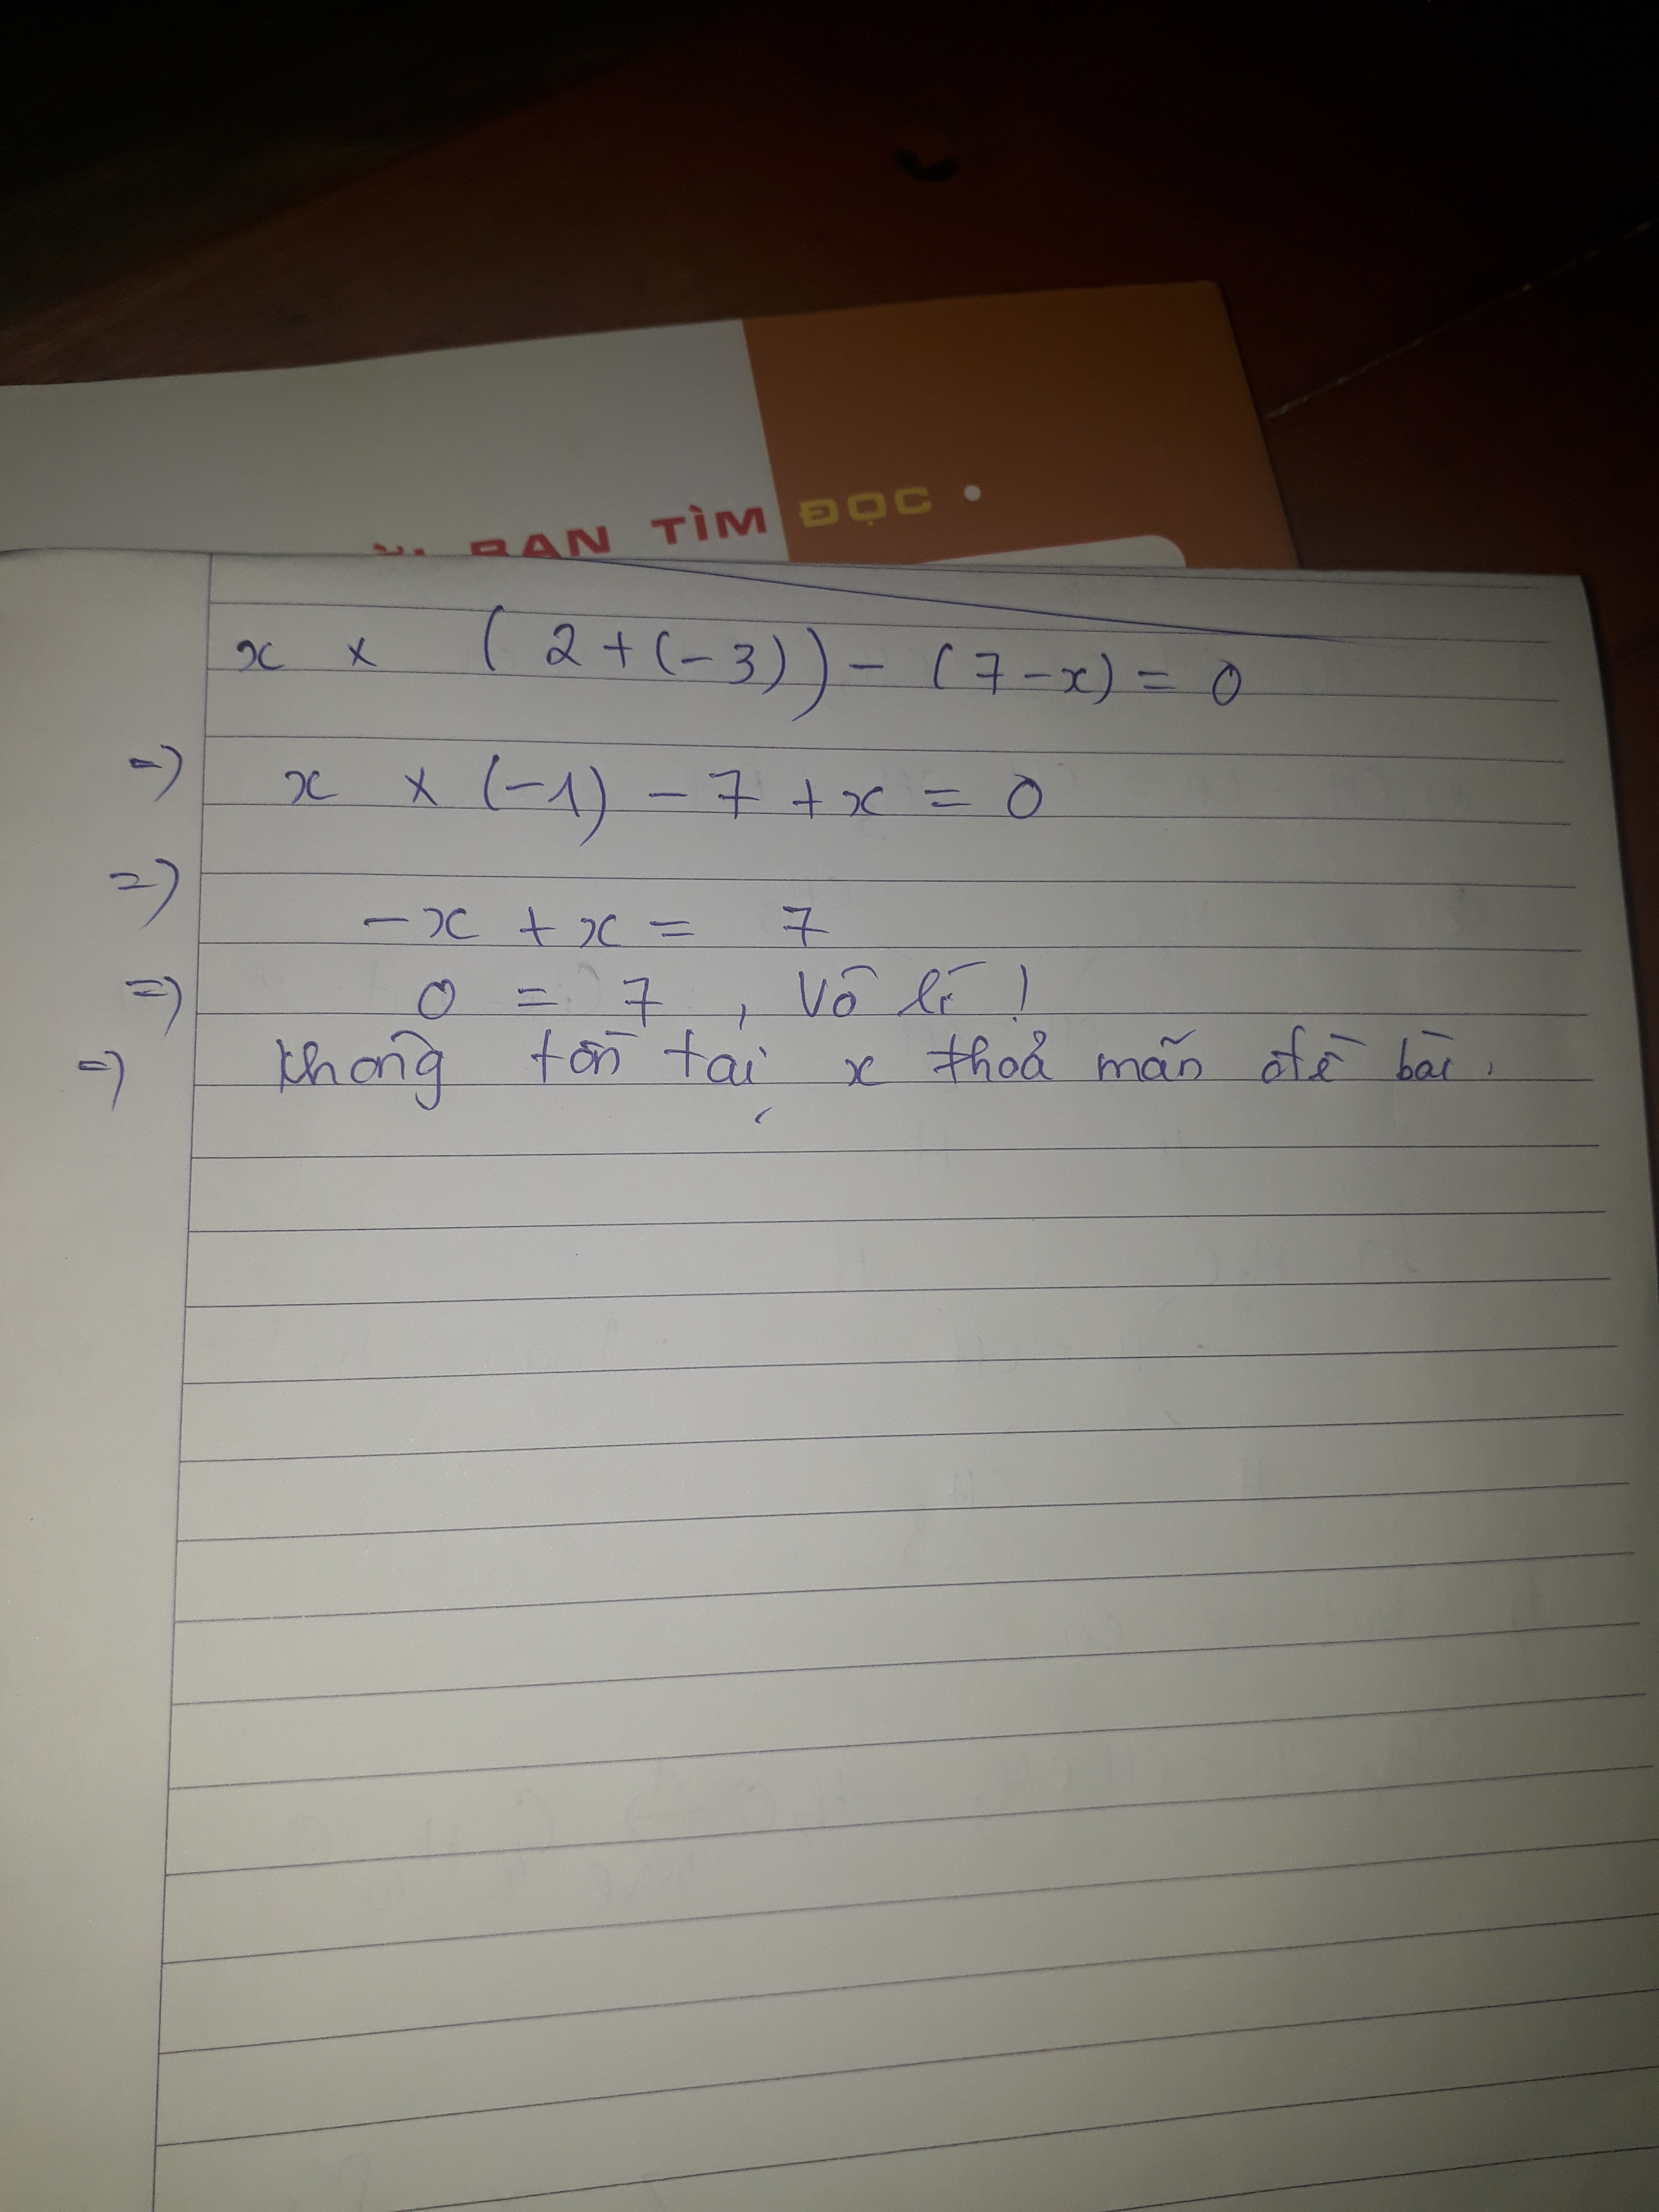 BẠN TÌM ĐỌC •
x × (2+(-3)) - (7-x) = 0
=) x × (-1) - 7 + x = 0
=) -x + x = 7
=) 0 = 7, Vô lí !
=) không tồn tại x thoả mãn đề bài.